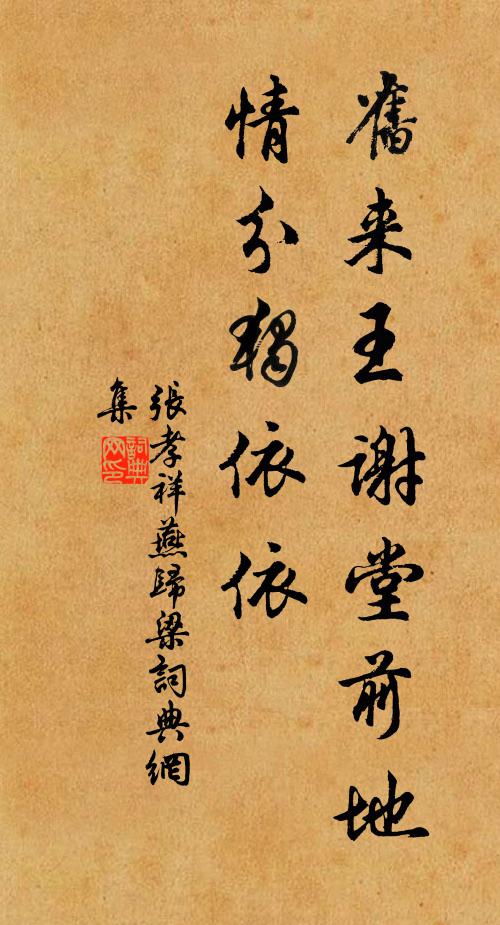 舊来王谢堂前地
情分獨依依
張孝祥燕歸梁詞典網
集
詞典
网印